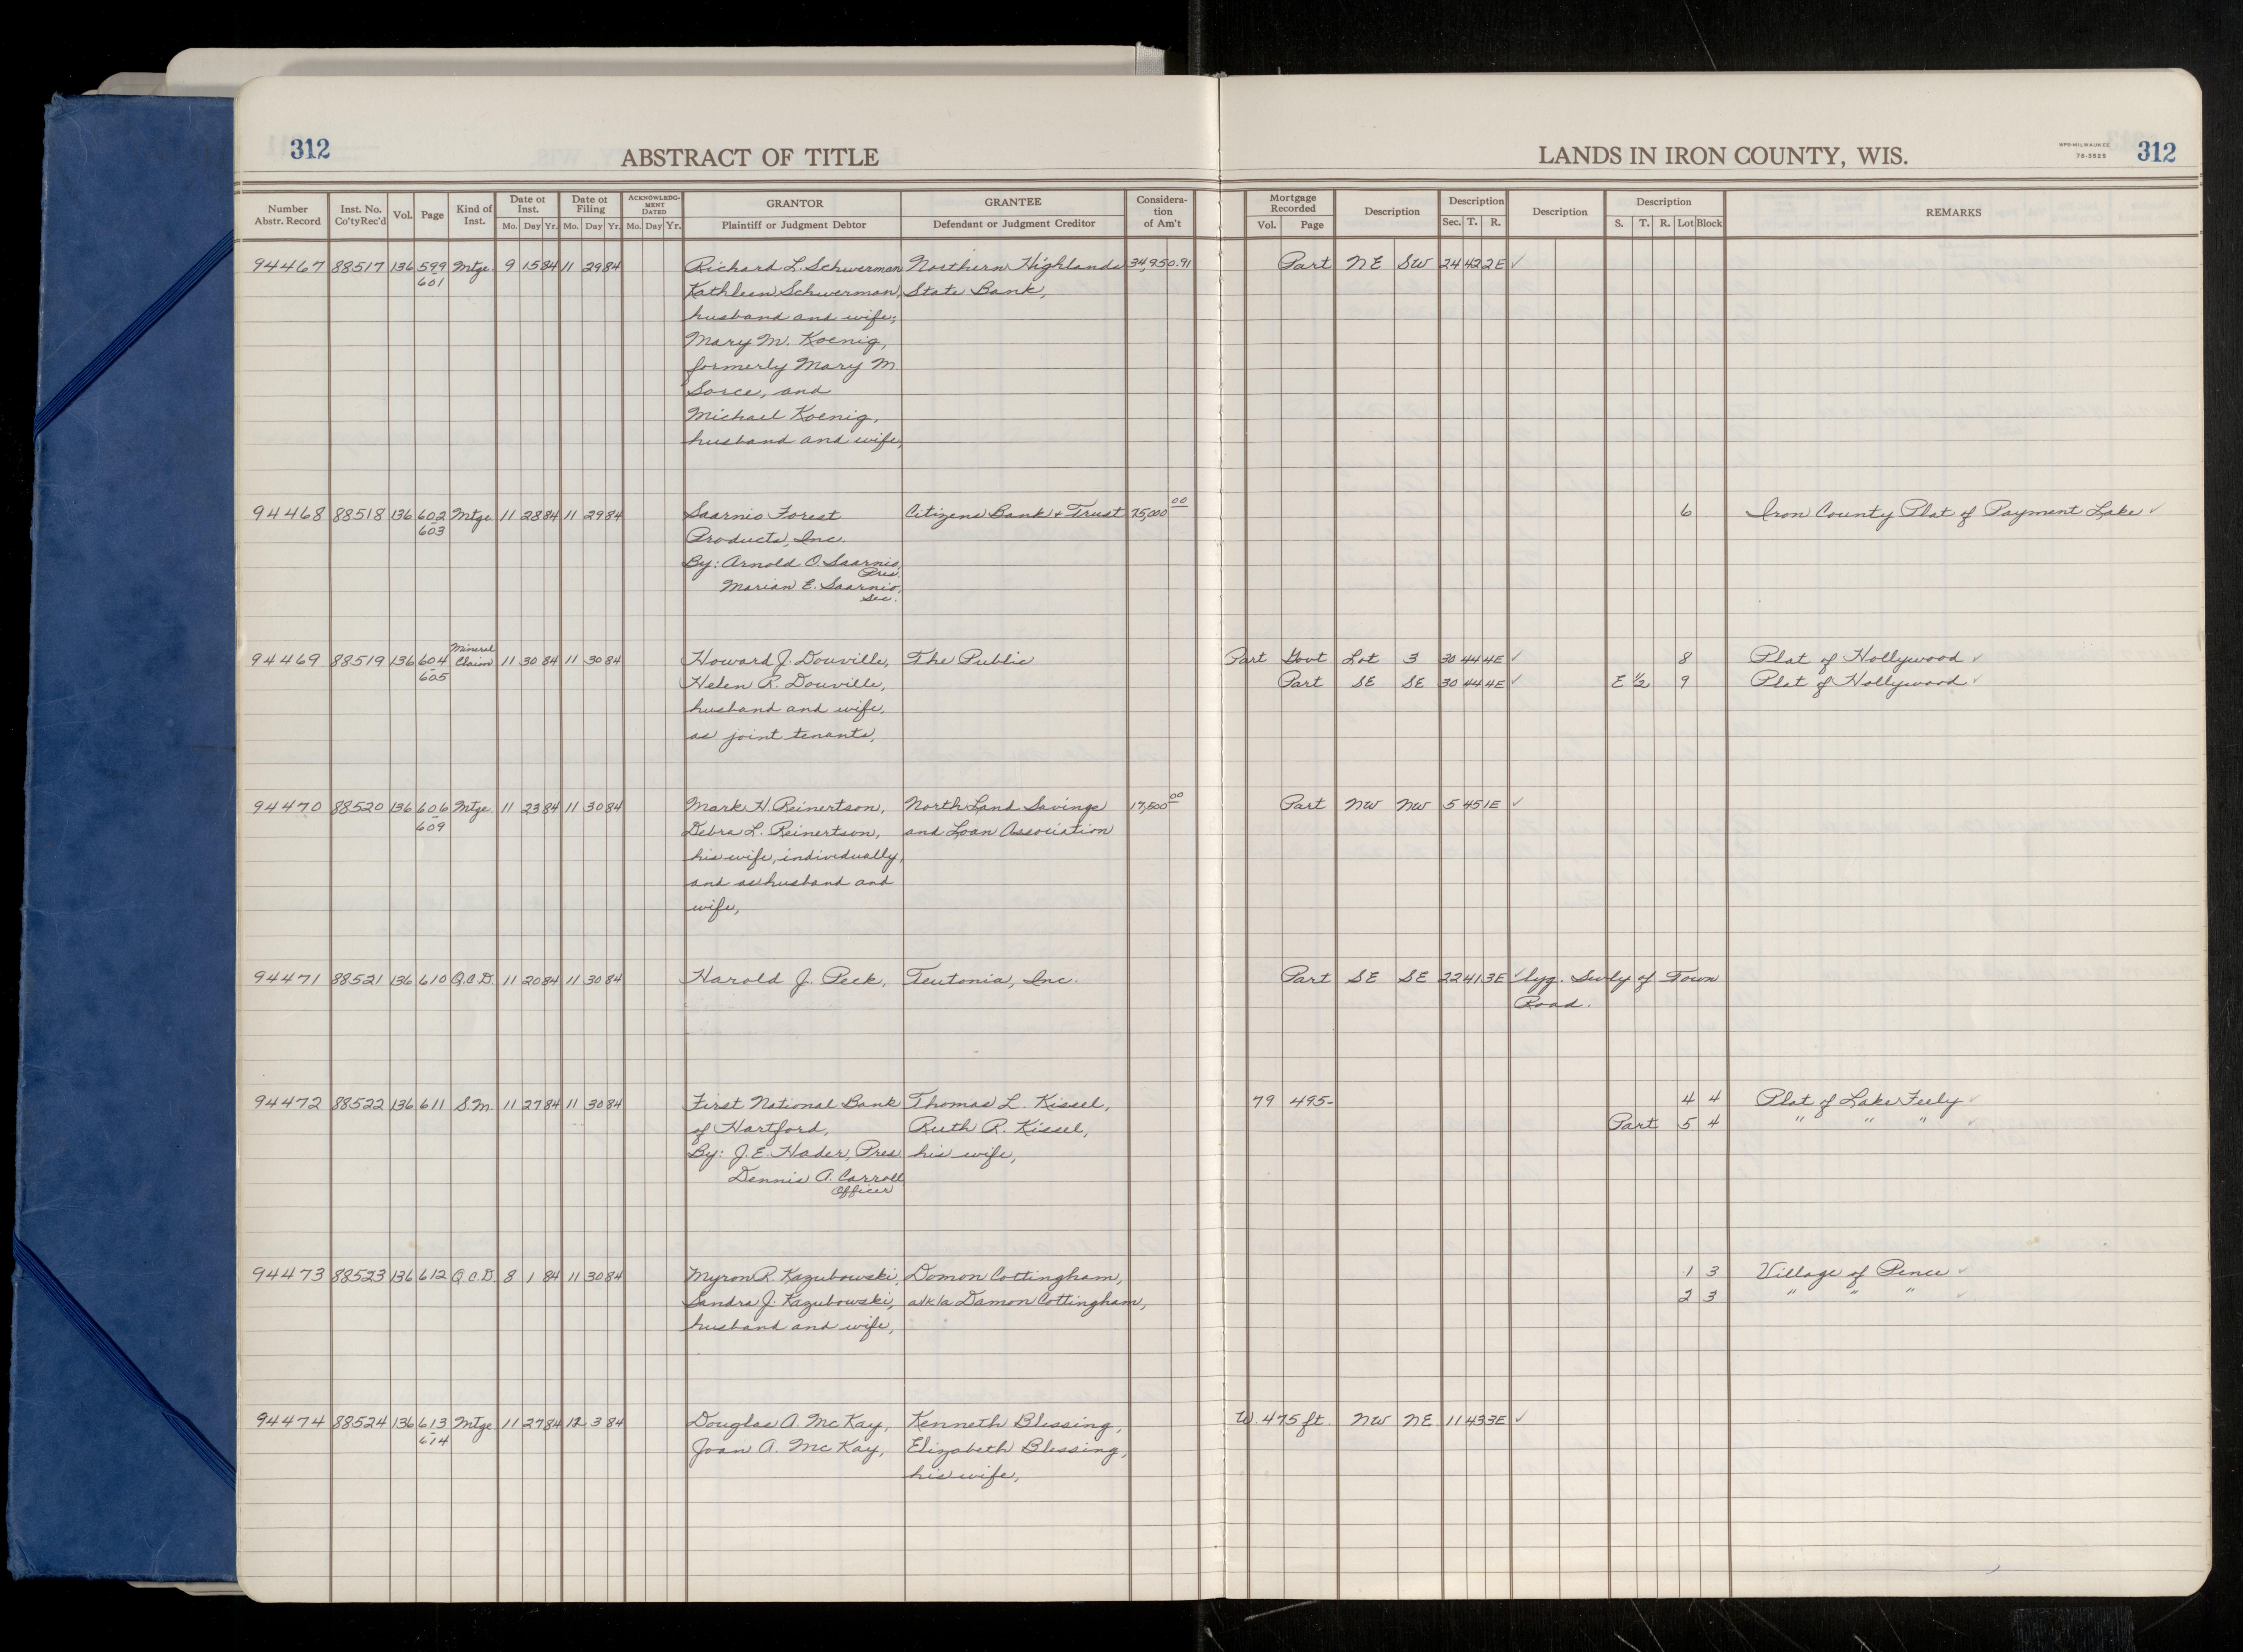 312 ABSTRACT OF TITLE LANDS IN IRON COUNTY, WIS. WPS-MILWAUKEE 78-3925 312
Number Abstr. Record Inst. No. Co'ty Rec'd Vol. Page Kind of Inst. Date of Inst. Mo. Day Yr. Date of Filing Mo. Day Yr. ACKNOWLEDGMENT DATED Mo. Day Yr. GRANTOR Plaintiff or Judgment Debtor GRANTEE Defendant or Judgment Creditor Consideration of Am't Mortgage Recorded Vol. Page Description Description Sec. T. R. Description Description S. T. R. Lot Block REMARKS
94467 88517 136 599 Mtge. 9 15 84 11 29 84 Richard L. Schwerman Northern Highlands 34,950.91 Part NE SW 24 42 2E ✓
601 Kathleen Schwerman, State Bank,
husband and wife;
Mary M. Koenig,
formerly Mary M.
Sorce, and
Michael Koenig,
husband and wife,
94468 88518 136 602 Mtge. 11 28 84 11 29 84 Saarnio Forest Citizens Bank + Trust 75,000 00 6 Iron County Plat of Payment Lake ✓
603 Products, Inc.
By: Arnold O. Saarnio, Pres.
Marian E. Saarnio, Sec.
94469 88519 136 604 Mineral Claim 11 30 84 11 30 84 Howard J. Douville, The Public Part Govt Lot 3 30 44 4E ✓ 8 Plat of Hollywood ✓
605 Helen R. Douville, Part SE SE 30 44 4E ✓ E 1/2 9 Plat of Hollywood ✓
husband and wife,
as joint tenants,
94470 88520 136 606 Mtge. 11 23 84 11 30 84 Mark H. Reinertson, North Land Savings 17,500 00 Part NW NW 5 45 1E ✓
609 Debra L. Reinertson, and Loan Association
his wife, individually,
and as husband and
wife,
94471 88521 136 610 Q.C.D. 11 20 84 11 30 84 Harold J. Peck, Teutonia, Inc. Part SE SE 22 41 3E ✓ lyg. Swly of Town
Road.
94472 88522 136 611 S.M. 11 27 84 11 30 84 First National Bank Thomas L. Kissel, 79 495- 4 4 Plat of Lake Feely ✓
of Hartford, Ruth R. Kissel, Part 5 4 " " " ✓
By: J.E. Hader, Pres. his wife,
Dennis A. Carroll
Officer
94473 88523 136 612 Q.C.D. 8 1 84 11 30 84 Myron R. Kazubowski, Domon Cottingham, 1 3 Village of Pence ✓
Sandra J. Kazubowski, a/k/a Damon Cottingham, 2 3 " " " ✓
husband and wife,
94474 88524 136 613 Mtge 11 27 84 12 3 84 Douglas A. McKay, Kenneth Blessing, W. 475 ft. NW NE 11 43 3E ✓
614 Joan A. McKay, Elizabeth Blessing,
his wife,